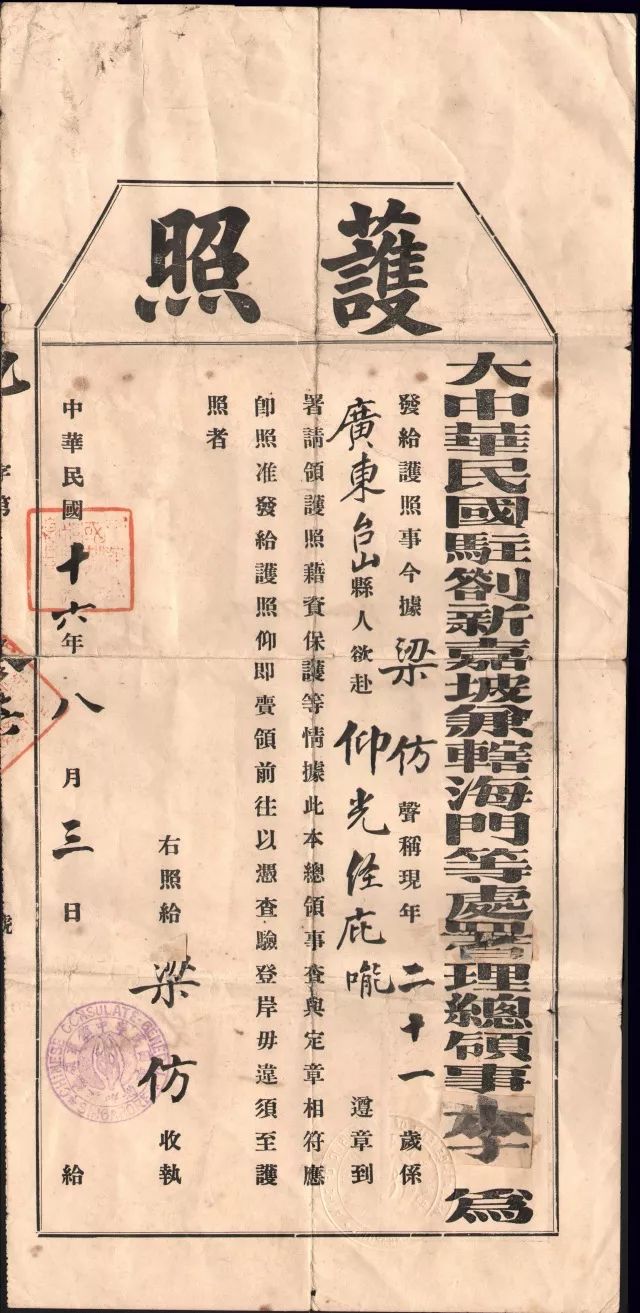 護照
大中華民國駐劄新嘉坡兼轄海門等處署理總領事李 爲
發給護照事今據梁仿聲稱現年二十一歲係
廣東台山縣人欲赴仰光經庇能遵章到
署請領護照藉資保護等情據此本總領事查與定章相符應
卽照准發給護照仰即賫領前往以憑查驗登岸毋違須至護
照者
右照給梁仿收執
中華民國十六年八月三日給
字第
號
CHINESE CONSULATE GENERAL